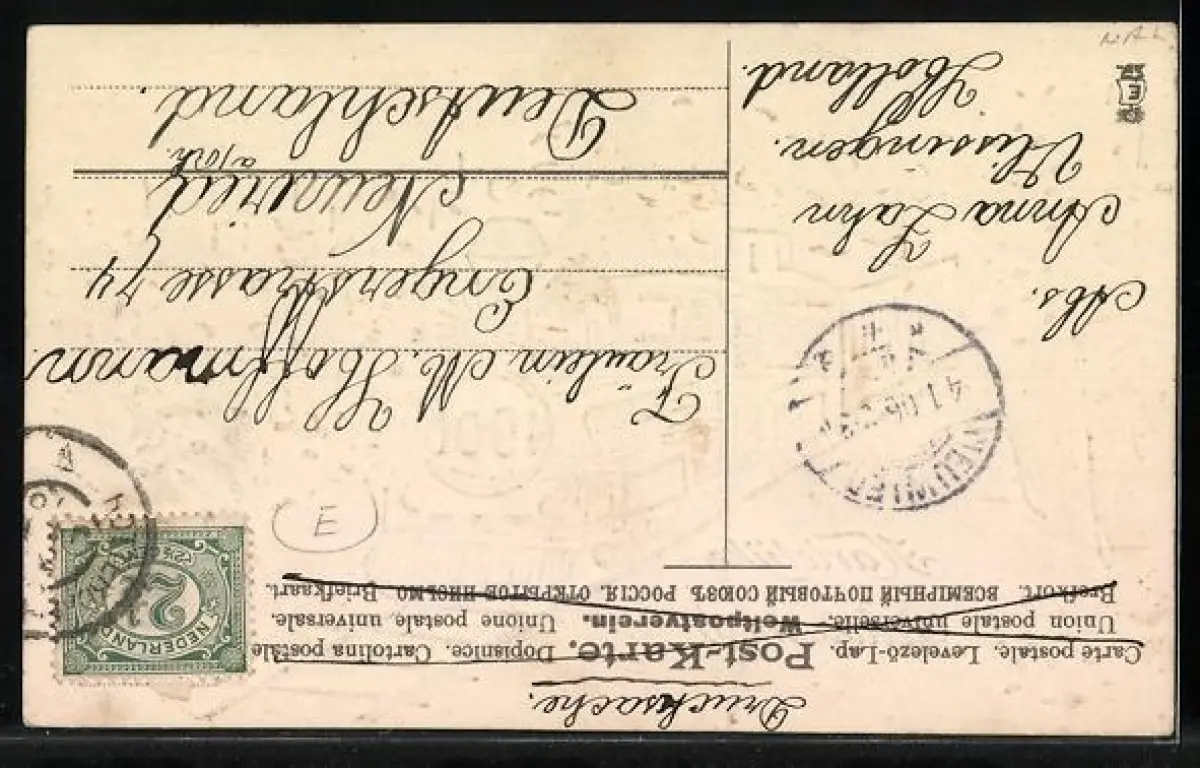 Drucksache.
Carte postale. Levelező-Lap. Post-Karte. Dopisnice. Cartolina postale
Union postale universelle. Weltpostverein. Unione postale universale.
Brefkort. ВСЕМІРНЫЙ ПОЧТОВЫЙ СОЮЗЪ РОССІЯ. ОТКРЫТОЕ ПИСЬМО Briefkaart.
NEDERLAND
2½
E
4.1.06
Abs.
Anna Zahn
Vlissingen.
Holland.
Fräulein M. Hoffmann
Engerstrasse 74
Neuwied
Deutschland.
E